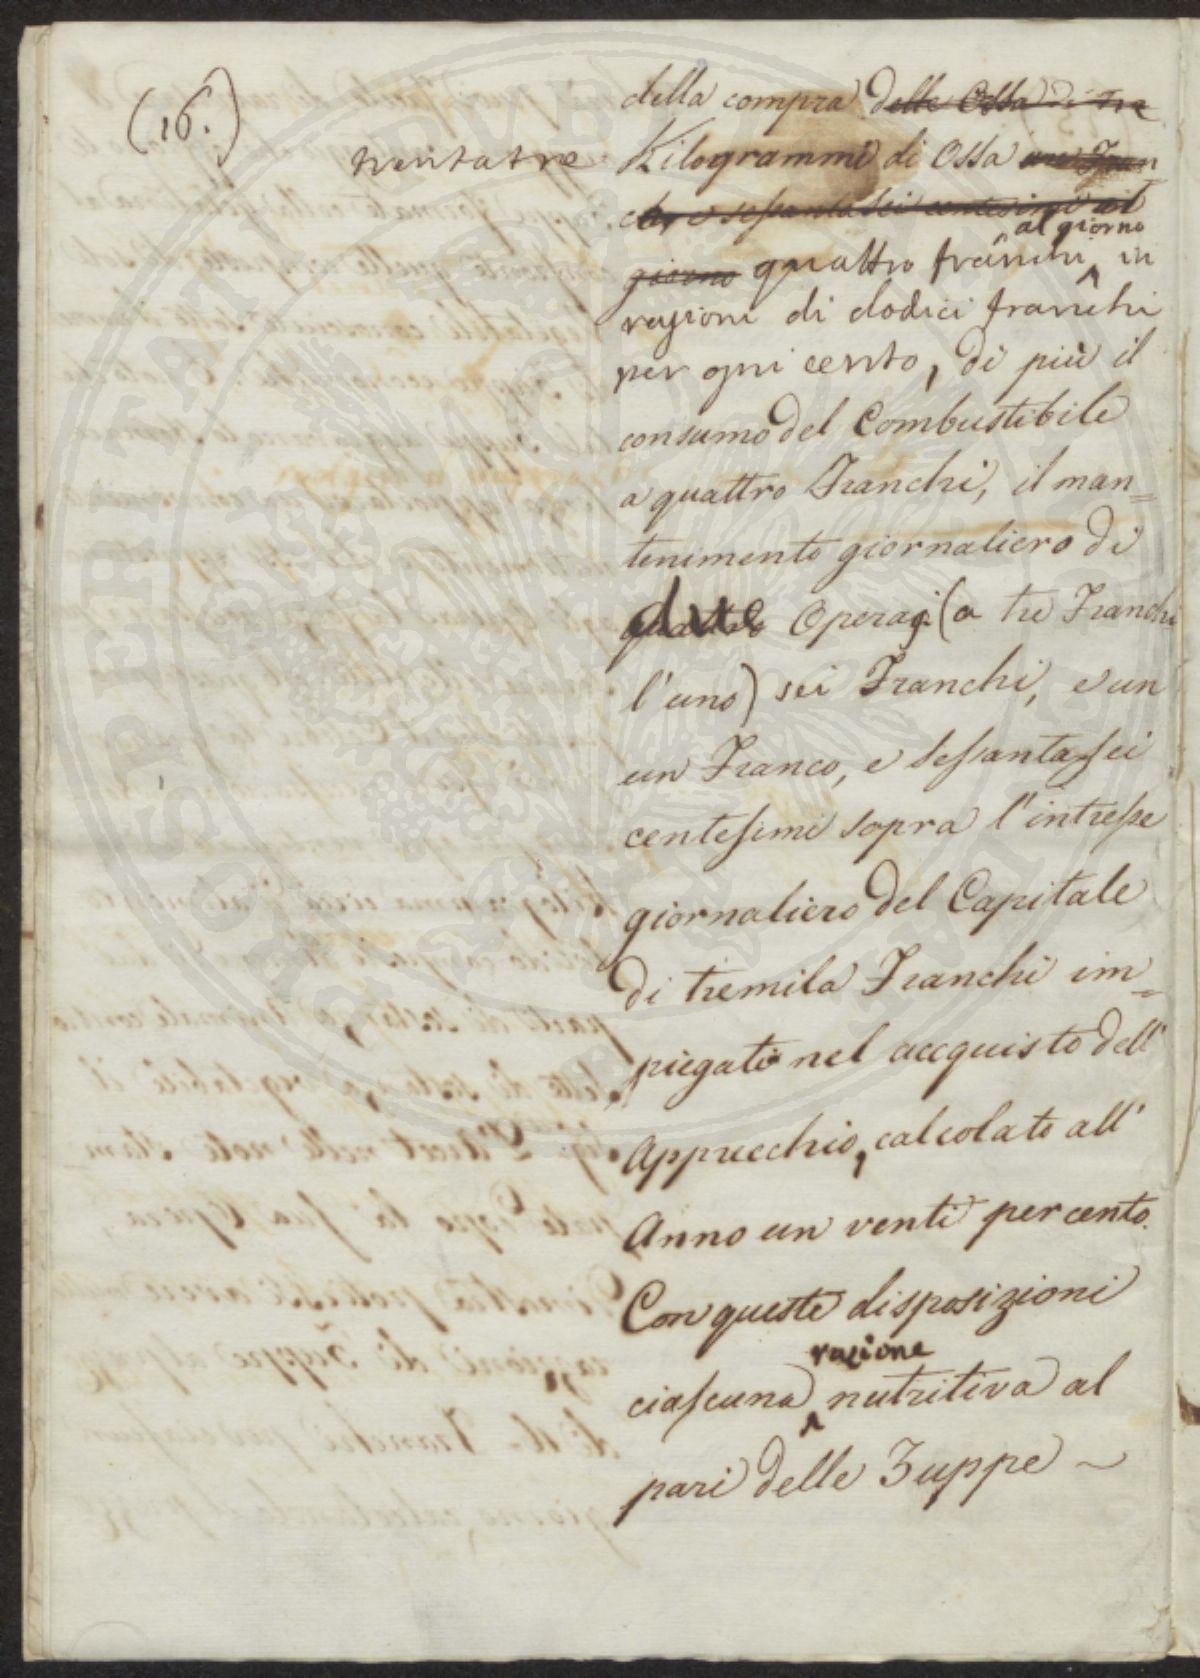 (16.)
trentatre
della compra delle Ossa di tre
Kilogrammi di Ossa un Fran
co e sessanta sei centesimi al
al giorno
giorno quattro franchi in
ragioni di dodici franchi
per ogni cento, di più il
consumo del Combustibile
a quattro Franchi, il man=
tenimento giornaliero di
due Operaj (a tre Franchi
l'uno) sei Franchi, e un
un Franco, e sessantasei
centesimi sopra l'intresse
giornaliero del Capitale
di tremila Franchi im=
piegati nel acquisto dell'
Apprecchio, calcolato all'
Anno un venti per cento.
Con queste disposizioni
razione
ciascuna nutritiva al
pari delle Zuppe ~